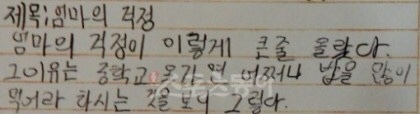 제목:엄마의 걱정
엄마의 걱정이 이렇게 큰줄 몰랐다.
그이유는 중학교 올라가면 어쩌나 밥을 많이
먹어라 하시는 것을 보니 그렇다.